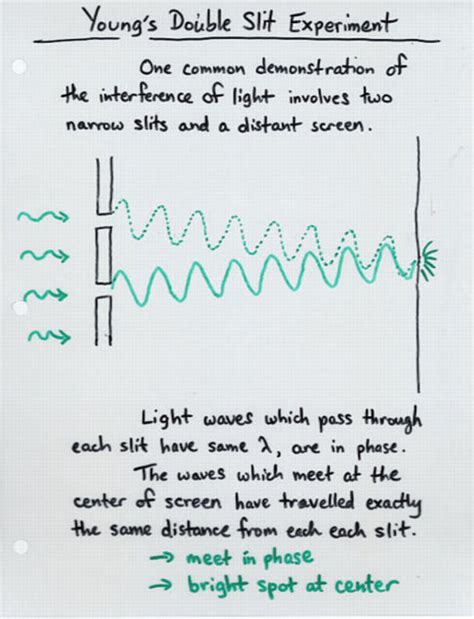 Young's Double Slit Experiment
One common demonstration of
the interference of light involves two
narrow slits and a distant screen.
Light waves which pass through
each slit have same λ, are in phase.
The waves which meet at the
center of screen have travelled exactly
the same distance from each each slit.
→ meet in phase
→ bright spot at center